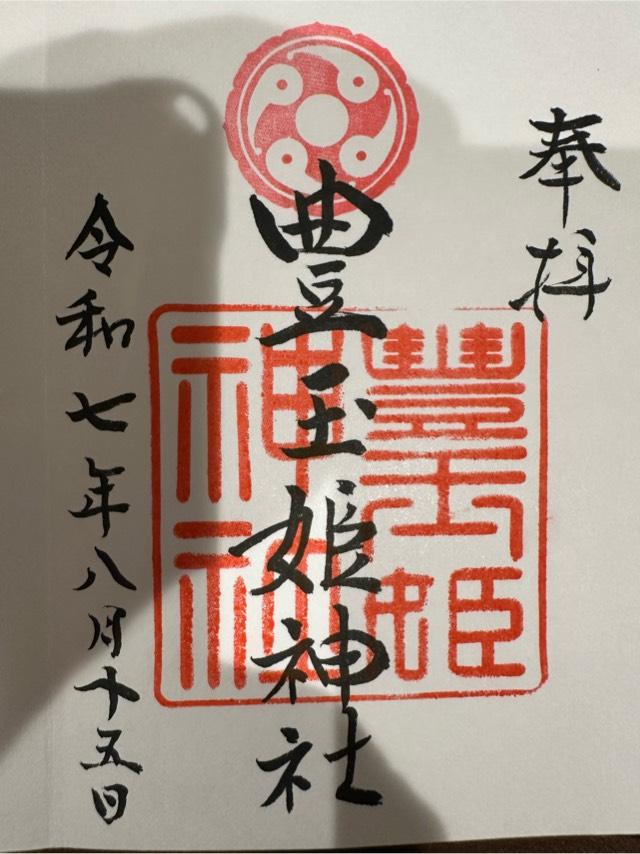 奉拝
豊玉姫神社
豊玉姫神社
令和七年八月十五日